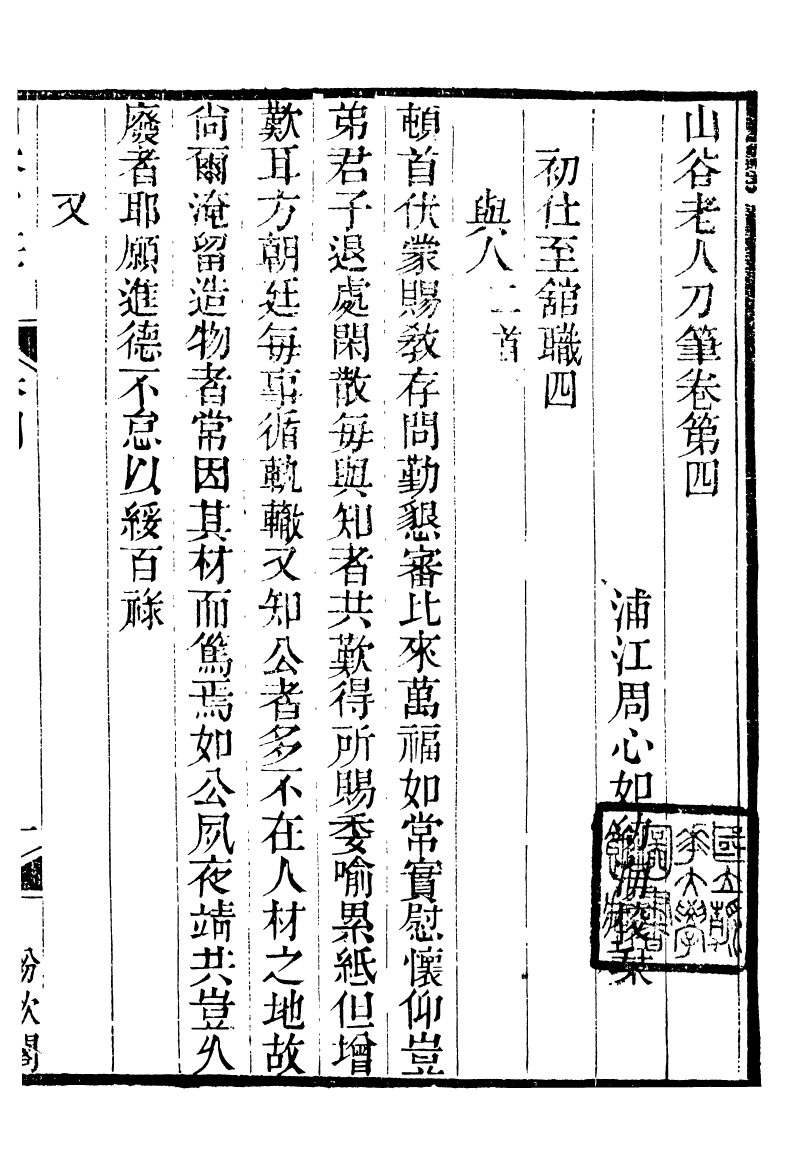 山谷老人刀筆卷第四
浦江周心如幼海校栞
初仕至舘職四
與人二首
頓首伏蒙賜敎存問勤懇審比來萬福如常實慰懷仰豈
弟君子退處閑散每與知者共歎得所賜委喻累紙但增
歎耳方朝廷每事循軌轍又知公者多不在人材之地故
尙爾淹留造物者常因其材而篤焉如公夙夜靖共豈久
廢者耶願進德不怠以綏百祿
又
紛欣閣
國立清
華大學
圖書
館藏